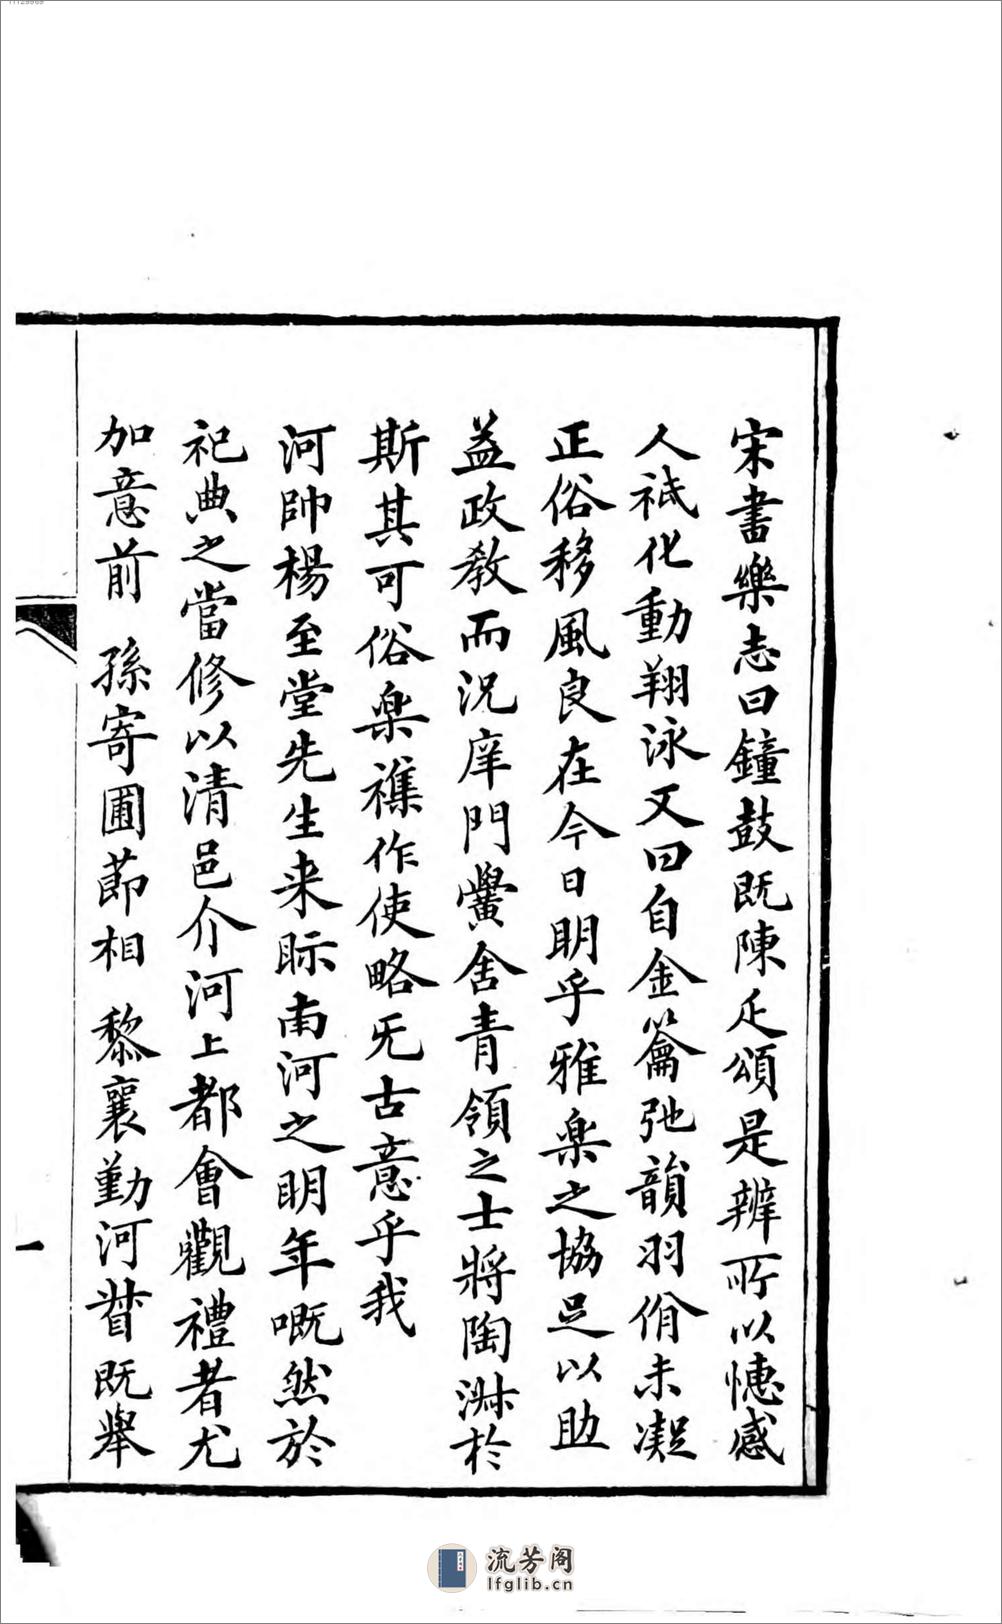 宋書樂志曰鐘鼓既陳疋頌是辨所以憓感
人祗化動翔泳又曰自金籥弛韻羽佾未凝
正俗移風良在今日明乎雅楽之協足以助
益政教而況庠門黌舍青領之士將陶淑於
斯其可俗楽襍作使略旡古意乎我
河帥楊至堂先生来眎南河之明年嘅然於
祀典之當修以清邑介河上都會觀禮者尤
加意前 孫寄圃莭相 黎襄勤河督既舉
一
流芳阁
lfglib.cn